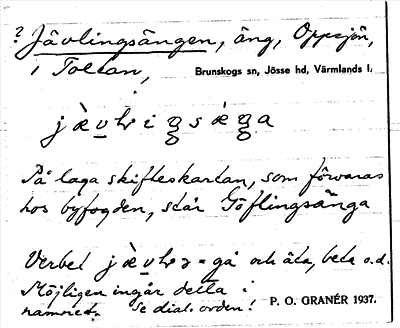 ? Jävlingsängen, äng, Oppsjön,
i Tollan,
Brunskogs sn, Jösse hd, Värmlands l.
På laga skifteskartan, som förvaras
hos byfogden, står Göflingsänga
Verbet = gå och äta, beta o.d.
Möjligen ingår detta i
namnet. Se dial. orden!
P. O. GRANÉR 1937.